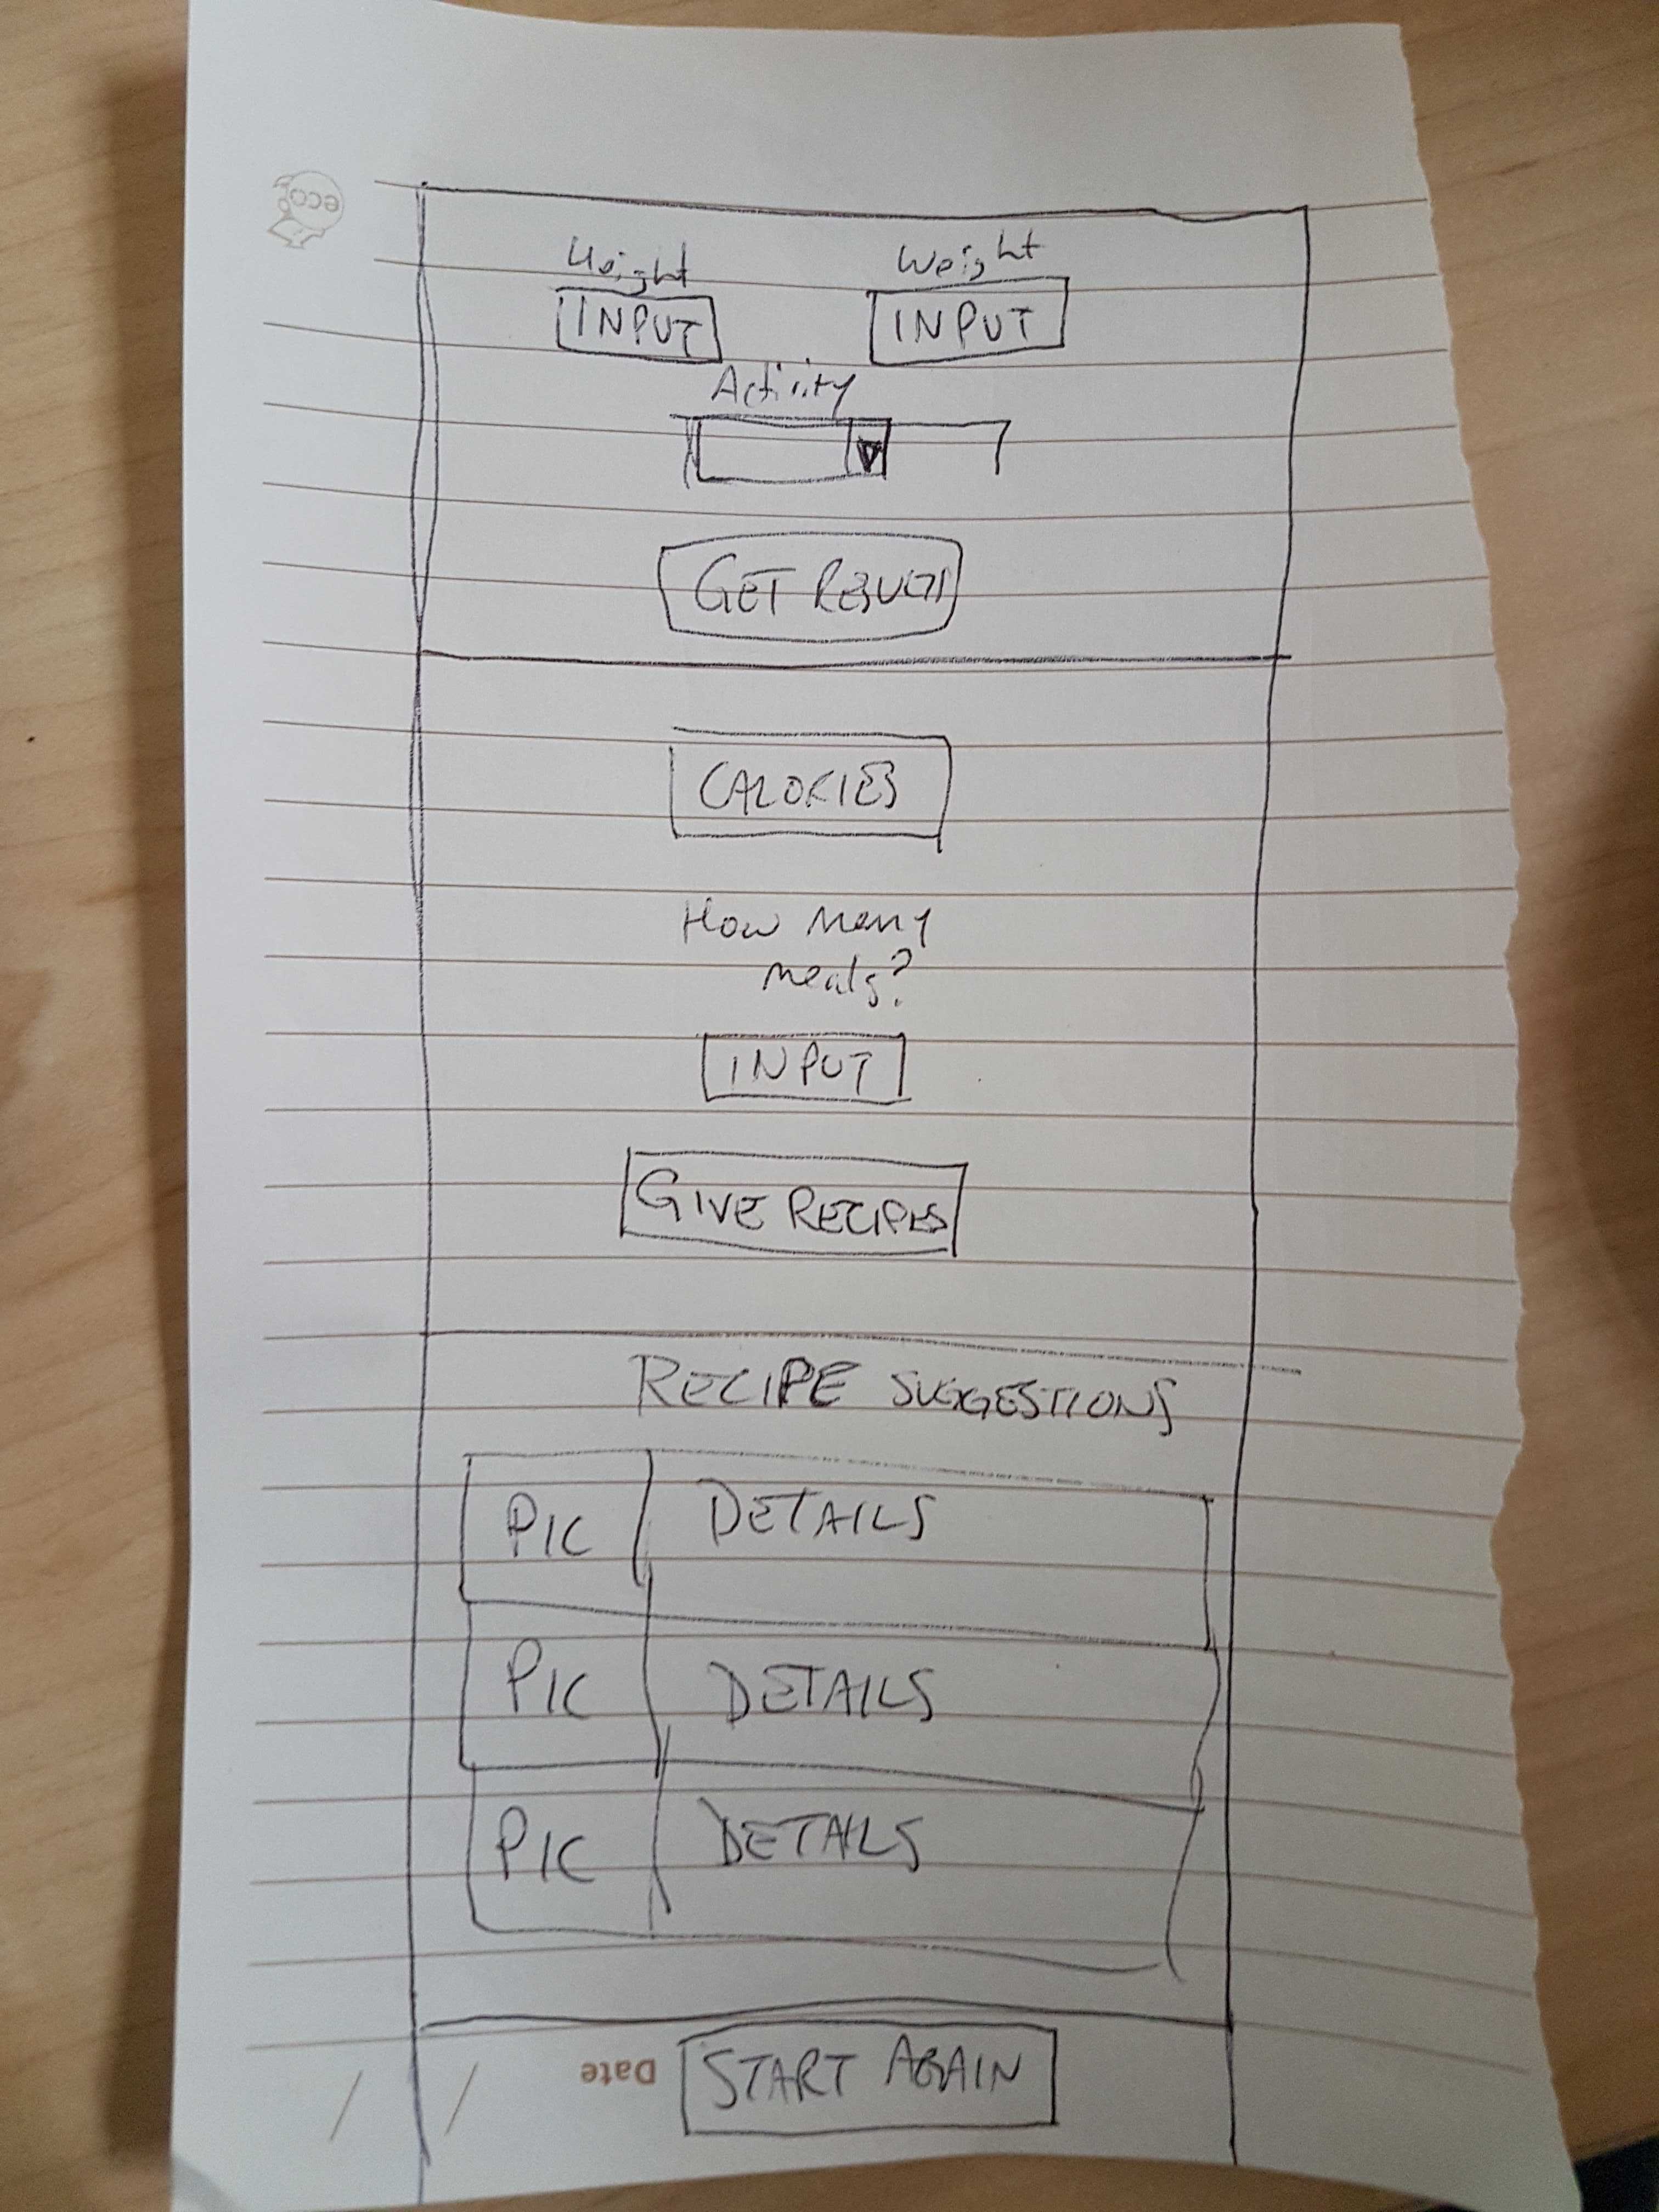 eco
Height Weight
INPUT INPUT
Activity
GET RESULTS
CALORIES
How many
meals?
INPUT
GIVE RECIPES
RECIPE SUGGESTIONS
PIC DETAILS
PIC DETAILS
PIC DETAILS
START AGAIN
Date / /